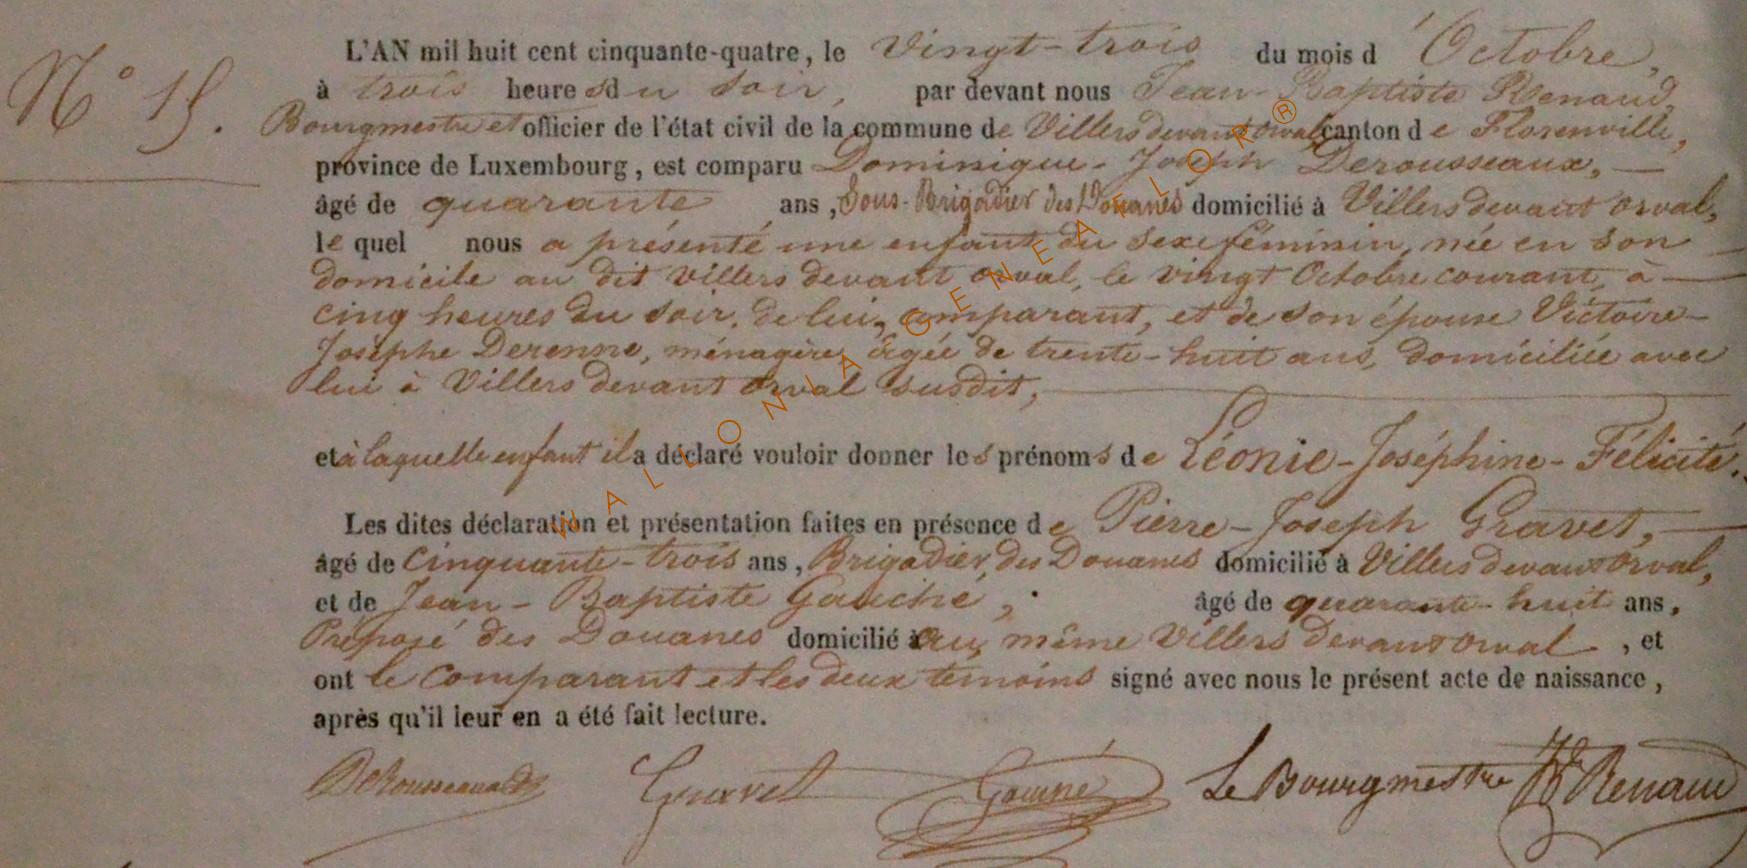 N° 15.
L'AN mil huit cent cinquante-quatre, le Vingt-trois du mois d'Octobre,
à trois heures du soir, par devant nous Jean-Baptiste Renaud,
Bourgmestre et officier de l'état civil de la commune de Villers devant orval, canton de Florenville,
province de Luxembourg, est comparu Dominique-Joseph Derousseaux,
âgé de quarante ans, Sous-Brigadier des Douanes domicilié à Villers devant orval,
lequel nous a présenté une enfant du sexe féminin, née en son
domicile au dit Villers devant orval, le vingt Octobre courant, à
cinq heures du soir, de lui, comparant, et de son épouse Victoire-
Josephe Derenne, ménagère, âgée de trente-huit ans, domiciliée avec
lui à Villers devant orval susdit,
et à laquelle enfant il a déclaré vouloir donner les prénoms de Léonie-Joséphine-Félicité.
Les dites déclaration et présentation faites en présence de Pierre-Joseph Gravet,
âgé de Cinquante-trois ans, Brigadier des Douanes domicilié à Villers devant orval,
et de Jean-Baptiste âgé de quarante-huit ans,
Préposé des Douanes domicilié au même Villers devant orval, et
ont le Comparant et les deux temoins signé avec nous le présent acte de naissance,
après qu'il leur en a été fait lecture.
DeRousseaux Gravet Le Bourgmestre Renaud
WALLONIA GENEALOR®